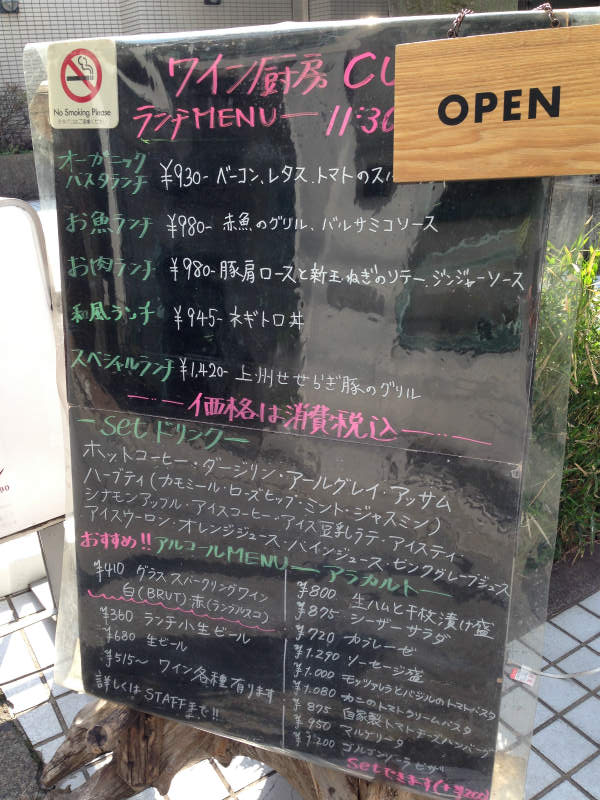 No Smoking Please
ワイン厨房 CU
OPEN
ランチMENU ー 11:30
オーガニック
パスタランチ ¥930- ベーコン、レタス、トマトのスパ
お魚ランチ ¥980- 赤魚のグリル、バルサミコソース
お肉ランチ ¥980- 豚肩ロースと新玉ねぎのソテー、ジンジャーソース
和風ランチ ¥945- ネギトロ丼
スペシャルランチ ¥1,420- 上州せせらぎ豚のグリル
価格は消費税込
ーsetドリンクー
ホットコーヒー・ダージリン・アールグレイ・アッサム
ハーブティ(カモミール・ローズヒップ・ミント・ジャスミン)
シナモンアップル・アイスコーヒー・アイス豆乳ラテ・アイスティー
アイスウーロン・オレンジジュース・パインジュース・ピンクグレープジュース
おすすめ!! アルコールMENU ー アラカルトー
¥410 グラススパークリングワイン
白(BRUT)・赤(ランブルスコ)
¥360 ランチ小生ビール
¥680 生ビール
¥515〜 ワイン各種有ります
詳しくはSTAFFまで!!
¥800 生ハムと干枚漬け盛
¥875 シーザーサラダ
¥720 カプレーゼ
¥1,290 ソーセージ盛
¥1,000 モッツァレラとバジルのトマトパスタ
¥1,080 カニのトマトクリームパスタ
¥875 自家製トマトチーズハンバーグ
¥950 マルゲリータ
¥1,200 ゴルゴンゾーラピザ
setできます(+¥200)